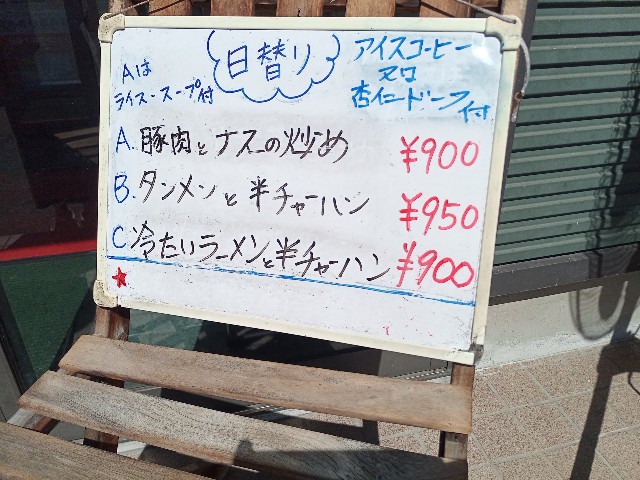 日替り
Aは
ライス・スープ付
アイスコーヒー
又は
杏仁ドーフ付
A. 豚肉とナスの炒め ¥900
B. タンメンと半チャーハン ¥950
C 冷たいラーメンと半チャーハン ¥900
★